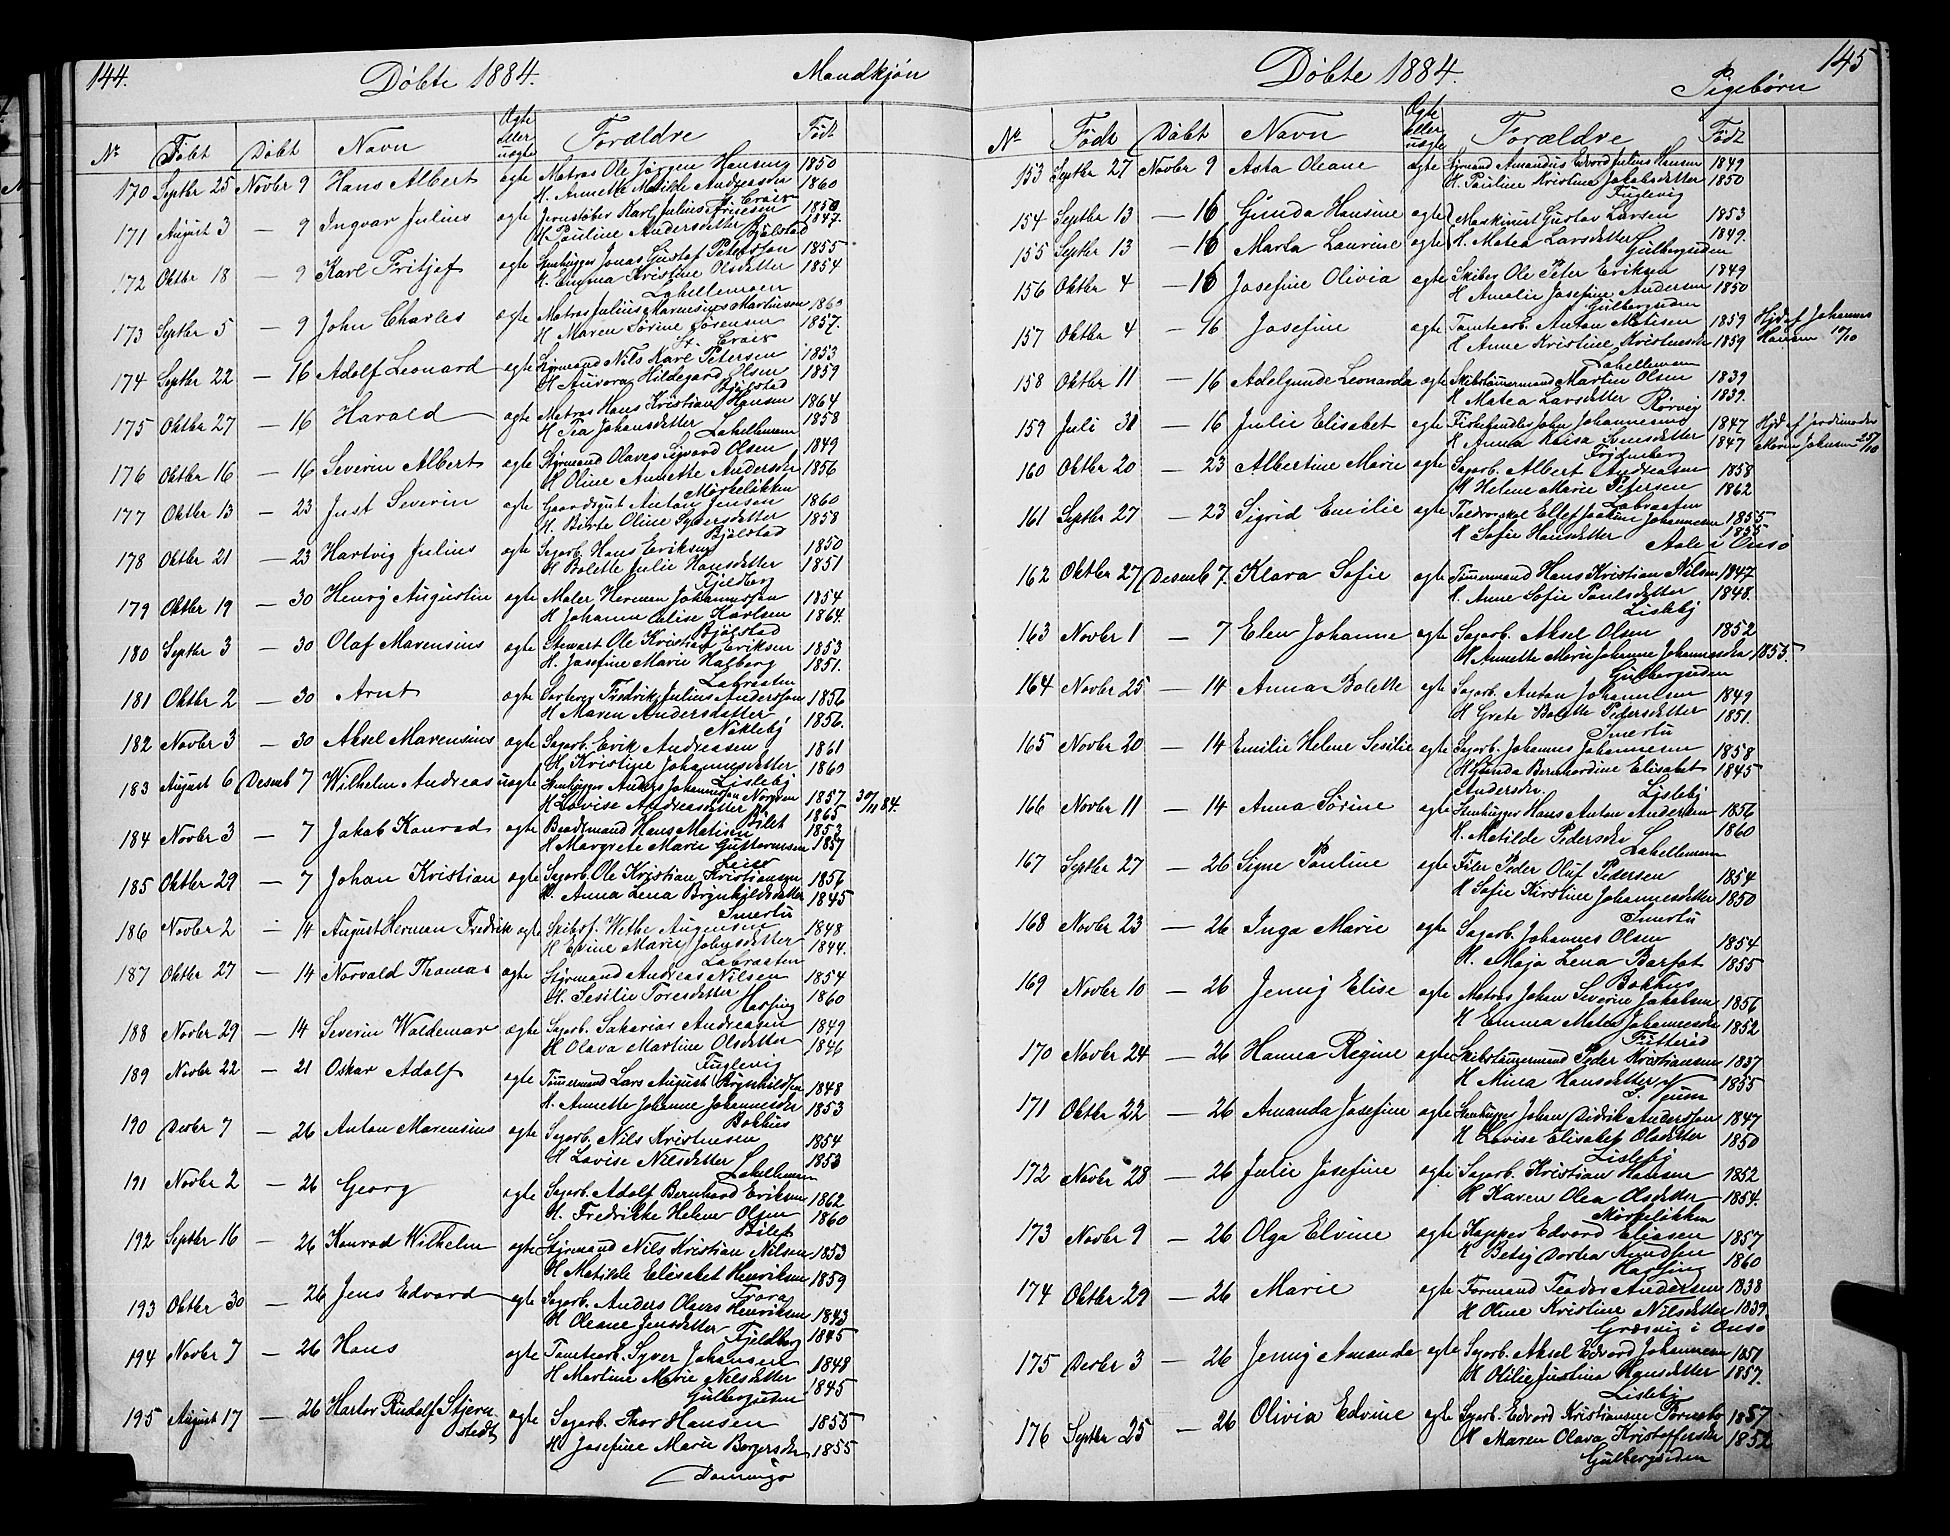 144.
Döbte 1884.
Mandkjön
No Födt Döbt Navn Ægte eller uægte Forældre Födt
170 Septbr 25 Novbr 9 Hans Albert ægte Matros Ole Jörgen Hansen 1850
H. Annette Matilde Andreasdr 1860
171 August 3 — 9 Ingvar Julius ægte Jernstöber Karl Julius 1850
H Pauline Andersdatter 1847.
Bjölstad
172 Oktbr 18 — 9 Karl Fritjof ægte Stenhugger Jonas Gustaf Petersson 1855
H. Emma Kristine Olsdatter 1854
Labellemoen
173 Septbr 5 — 9 John Charles ægte Matros Julius Marensius Martinsen 1860
H Maren Sörine Sörensen 1857.
174 Septbr 22 — 16 Adolf Leonard ægte Styrmand Nils Karl Petersen 1853
H Aurora Hildegard Olsen 1859
Bjölstad
175 Oktbr 27 — 16 Harald ægte Matros Hans Kristian Hansen 1864
H Tea Johansdatter 1858
Labellemoen
176 Oktbr 16 — 16 Severin Albert ægte Styrmand Olaves Sigvard Olsen 1849
H Oline Annette Andersdr 1856
Mörkelökken
177 Oktbr 13 — 23 Just Severin ægte Gaardsgut Anton Jensen 1860
H. Birte Oline Syversdatter 1858
Bjölstad
178 Oktbr 21 — 23 Hartvig Julius ægte Sagarb. Hans Eriksen 1850
H Bolette Julie Hansdatter 1851
Fjeldberg
179 Oktbr 19 — 30 Henry Augustin ægte Maler Herman Johannessen 1854
H Johanne Elise Karlsen 1864.
Bjölstad
180 Septbr 3 — 30 Olaf Marensius ægte Stewart Ole Kristian Eriksen 1853
H. Josefine Marie Halberg 1851.
Labraaten
181 Oktbr 2 — 30 Arnt ægte Fredrik Julius Anderssen 1856
H Maren Andersdatter 1856.
Naklebj
182 Novbr 3 — 30 Aksel Marensius ægte Sagarb. Erik Andreasen 1861
H Kristine Johannesdatter 1860
Lislebj
183 August 6 Desmb 7 Wilhelm Andreas uægte Stenhugger Anders Johannessen Norgren 1857 30/11 84.
H Lovise Andreasdatter 1865
Bilet
184 Novbr 3 — 7 Jakob Konrad ægte Baadsmand Hans Matisen 1853
H Margrete Marie Guttormsen 1857
Leie
185 Oktbr 29 — 7 Johan Kristian ægte Sagarb. Ole Kristian Kristiansen 1856
H. Anna Lena Brynhildsdatter 1845
Smertu
186 Novbr 2 — 14 August Herman Fredrik ægte Skibsf. Wethe Augensen 1848
H Evine Marie Johnsdatter 1844.
Labraaten
187 Oktbr 27 — 14 Norvald Thomas ægte Styrmand Andreas Nilsen 1854
H. Sesilie Toresdatter 1860
Hassing
188 Novbr 29 — 14 Severin Waldemar ægte Sagarb. Sakarias Andreasen 1849
H Olava Martine Olsdatter 1846
Fuglevig
189 Novbr 22 — 21 Oskar Adolf ægte Tömmermand Lars August Brynhildsen 1848
H. Annette Johanne Johannesdr 1853
Bakhus
190 Desbr 7 — 26 Anton Marensius ægte Sagarb. Nils Kristensen 1854
H Lovise Nilsdatter 1853
Labellemoen
191 Novbr 2 — 26 Georg ægte Sagarb. Adolf Bernhard Eriksen 1862
H. Fredrikke Helene Olsen 1860
Bilet
192 Septbr 16 — 26 Konrad Wilhelm ægte Styrmand Nils Kristian Nilsen 1853
H Matilde Elisabet Henriksen 1859
Trara
193 Oktbr 30 — 26 Jens Edvard ægte Sagarb. Anders Olaves Henriksen 1843
H Oleane Jensdatter 1845
Fjeldberg
194 Novbr 7 — 26 Hans ægte Tomtearb. Syver Johansen 1848
H Martine Marie Nilsdatter 1845
Gulbergsiden
195 August 17 — 26 Hartor Rudolf Stjern- ægte Sagarb. Thor Hansen 1855
stedt
H Josefine Marie Borgersdr 1855
Domingo
145
Döbte 1884.
Pigebörn
No Födt Döbt Navn Ægte eller uægte Forældre Födt
153 Septbr 27 Novbr 9 Asta Oleane ægte Styrmand Amandus Edvard Julius Hansen 1849
H. Pauline Kristine Jakobsdatter 1850
Fuglevig
154 Septbr 13 — 16 Gunda Hansine ægte Maskinist Gustav Larsen 1853
155 Septbr 13 — 16 Marta Laurine ægte H. Matea Larsdatter 1849.
Gulbergsiden
156 Oktbr 4 — 16 Josefine Olivia ægte Skiber Ole Peter Eriksen 1849
H Amalie Josefine Andersen 1850
Gulbergsiden
157 Oktbr 4 — 16 Josefine ægte Tomtearb. Anton Matisen 1859 Hjd af Johannes
H Anne Kristine Kristiansdr 1859 Hansen 10/10
Labellemoen
158 Oktbr 11 — 16 Adelgunde Leonarda ægte Skibstömmermand Martin Olsen 1839
H Matea Larsdatter 1839.
Rörvig
159 Juli 31 — 16 Julie Elisabet ægte Fiskehandler John Johannesen 1847 Hjd af jordmoder
H Anna Kaisa Svensdatter 1847 Maren Johansen 25/10
Frydenberg
160 Oktbr 20 — 23 Albertine Marie ægte Sagarb. Albert Andreasen 1858
H Helene Marie Petersen 1862
Labraaten
161 Septbr 27 — 23 Sigrid Emilie ægte Ellef Joakim Johannesen 1855
H Sofie Hansdatter 1855
Aale i Onsö
162 Oktbr 27 Desemb 7. Klara Sofie ægte Tömmermand Hans Kristian Nilsen 1847
H. Anne Sofie Paulsdatter 1848.
Lislebj
163 Novbr 1 — 7 Elen Johanne ægte Sagarb. Aksel Olsen 1852
H Annette Marie Johanne Johannesdr 1855.
Gulbergsiden
164 Novbr 25 — 14 Anna Bolette ægte Sagarb. Anton Johannesen 1849
H Grete Bolette Pedersdatter 1851.
Smertu
165 Novbr 20 — 14 Emilie Helene Sesilie ægte Sagarb. Johannes Johannesen 1858
H Gunda Bernhardine Elisabet 1845
Andersdr. Lislebj
166 Novbr 11 — 14 Anna Sörine ægte Stenhugger Hans Anton Andersen 1856
H. Matilde Pedersdr 1860
Labellemoen
167 Septbr 27 — 26 Signe Pauline ægte Filer Peder Oluf Pedersen 1854
H Sofie Kirstine Johannesdatter 1850
Smertu
168 Novbr 23 — 26 Inga Marie ægte Sagarb. Johannes Olsen 1854
H. Maja Lena Barfot 1855
Bakhus
169 Novbr 10 — 26 Jenny Elise ægte Matros Johan Severin Jakobsen 1856
H Emma Matea Johannesdr 1852
170 Novbr 24 — 26 Hanna Regine ægte Skibstömmermand Peder Kristiansen 1837
H Mina Hansdatter 1855
171 Oktbr 22 — 26 Amanda Josefine ægte Stenhugger Johan Didrik Anderssen 1847
H Lovise Elisabet Olsdatter 1850
Lislebj
172 Novbr 28 — 26 Julie Josefine ægte Sagarb. Kristian Hansen 1852
H Karen Olea Olsdatter 1854.
Mörkelökken
173 Novbr 9 — 26 Olga Elvine ægte Kapper Edvard Eliasen 1857
H Betsy Dorthea Knudsen 1860
Hassing
174 Oktbr 29 — 26 Marie ægte Formand Teodor Andersen 1838
H Oline Kristine Nilsdatter 1839
Græsvig i Onsö
175 Desbr 3 — 26 Jenny Amanda ægte Sagarb. Aksel Edvard Johannesen 1851
H Otilie Justine Hansdatter 1857.
Lislebj
176 Septbr 25 — 26 Olivia Edvine ægte Sagarb. Edvard Kristiansen Tornsbo 1857
H Maren Olava Kristoffersdr 1852
Gulbergsiden